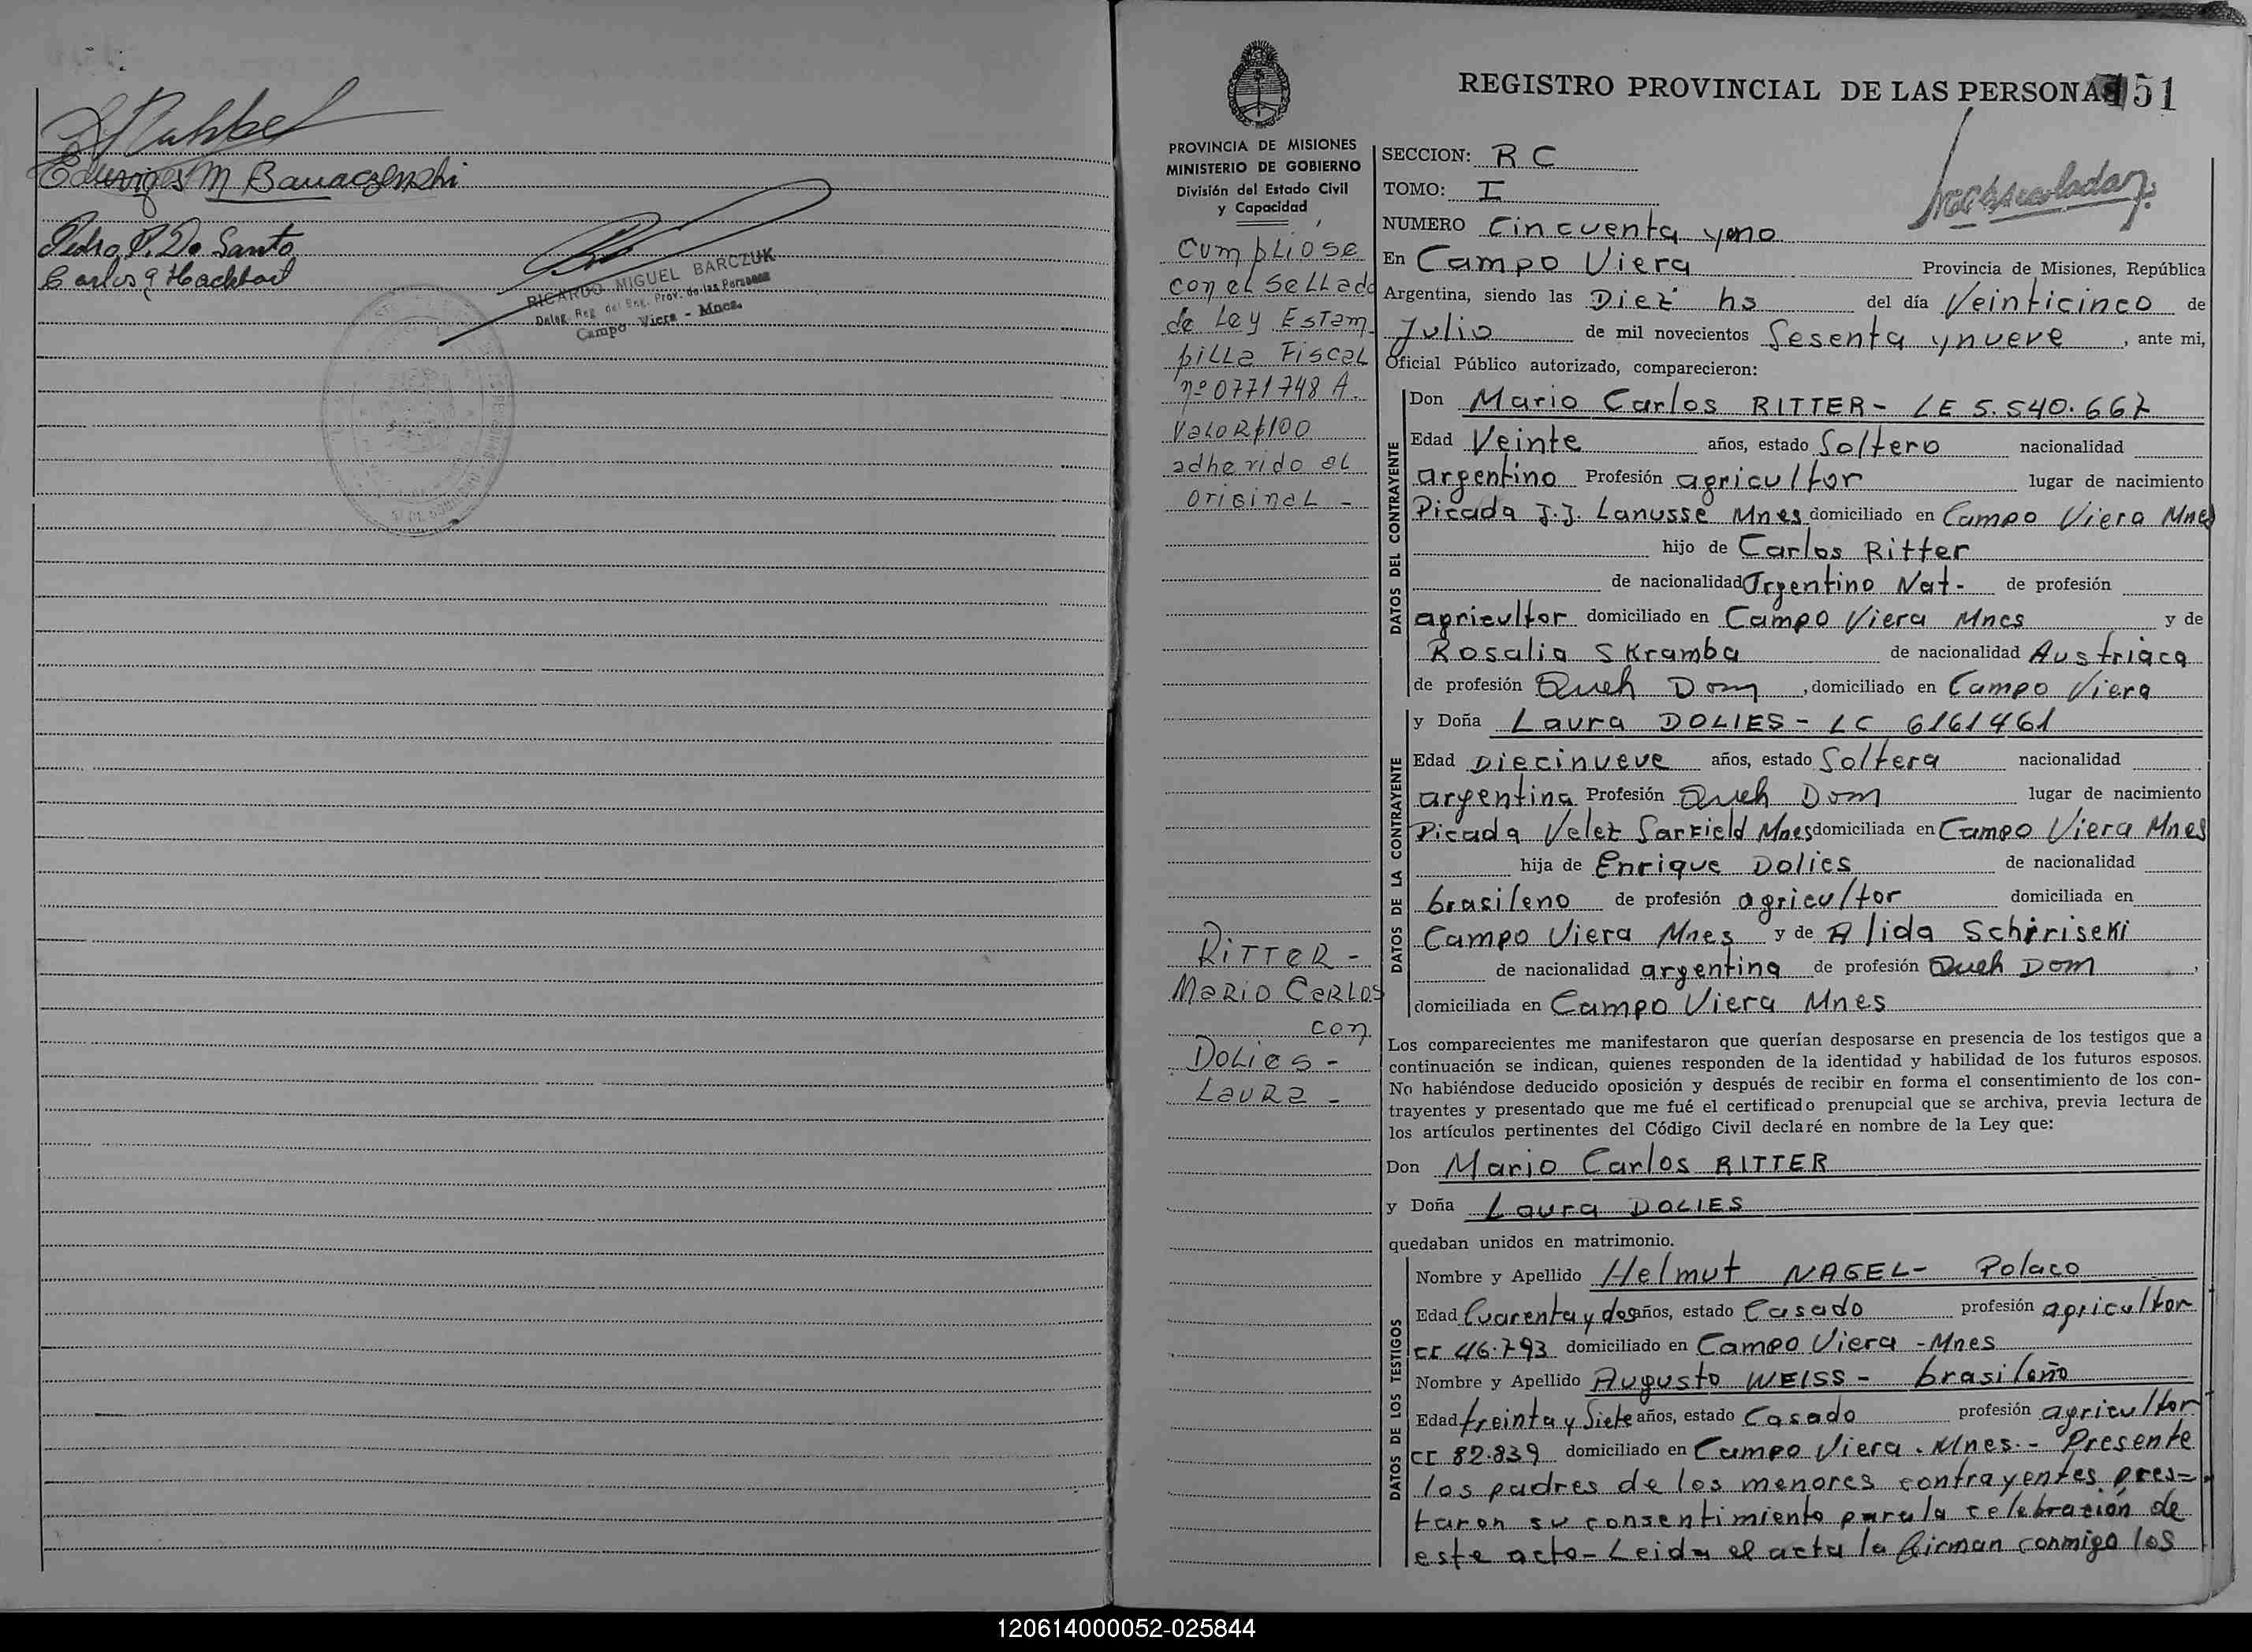 Eduviges M Banaczenski
Pedro P. Do Santo
Carlos g Hachbart
RICARDO MIGUEL BARCZUK
Deleg. Reg. del Reg. Prov. de las Personas
Campo Viera - Mnes.
REGISTRO PROVINCIAL DE LAS PERSONAS 51
PROVINCIA DE MISIONES
MINISTERIO DE GOBIERNO
División del Estado Civil
y Capacidad
Cumpliose
con el Sellado
de Ley Estam
pilla Fiscal
nº 0771748 A.
Valor $100
adherido al
original -
RITTER -
Mario Carlos
con
Dolies -
Laura -
SECCION: R C
TOMO: I
NUMERO Cincuenta y uno
En Campo Viera Provincia de Misiones, República
Argentina, siendo las Diez hs del día Veinticinco de
Julio de mil novecientos Sesenta y nueve , ante mi,
Oficial Público autorizado, comparecieron:
DATOS DEL CONTRAYENTE
Don Mario Carlos RITTER - LE 5.540.667
Edad Veinte años, estado Soltero nacionalidad
argentino Profesión agricultor lugar de nacimiento
Picada J.J. Lanusse Mnes domiciliado en Campo Viera Mnes
hijo de Carlos Ritter
de nacionalidad Argentino Nat- de profesión
agricultor domiciliado en Campo Viera Mnes y de
Rosalia SKramba de nacionalidad Austriaca
de profesión Queh Dom , domiciliado en Campo Viera
DATOS DE LA CONTRAYENTE
y Doña Laura DOLIES - LC 6161461
Edad Diecinueve años, estado Soltera nacionalidad
argentina Profesión Queh Dom lugar de nacimiento
Picada Velez Sarfield Mnes domiciliada en Campo Viera Mnes
hija de Enrique Dolies de nacionalidad
brasileno de profesión agricultor domiciliada en
Campo Viera Mnes y de Alida Schiriseki
de nacionalidad argentina de profesión Queh Dom ,
domiciliada en Campo Viera Mnes
Los comparecientes me manifestaron que querían desposarse en presencia de los testigos que a
continuación se indican, quienes responden de la identidad y habilidad de los futuros esposos.
No habiéndose deducido oposición y después de recibir en forma el consentimiento de los con-
trayentes y presentado que me fué el certificado prenupcial que se archiva, previa lectura de
los artículos pertinentes del Código Civil declaré en nombre de la Ley que:
Don Mario Carlos RITTER
y Doña Laura DOLIES
quedaban unidos en matrimonio.
DATOS DE LOS TESTIGOS
Nombre y Apellido Helmut NAGEL - Polaco
Edad Cuarenta y dos años, estado Casado profesión agricultor
CI 46.793 domiciliado en Campo Viera - Mnes
Nombre y Apellido Augusto WEISS - brasileño
Edad treinta y Siete años, estado Casado profesión agricultor
CI 82.839 domiciliado en Campo Viera. Mnes.- Presente
los padres de los menores contrayentes pres-
taron su consentimiento para la celebración de
este acto - Leida el acta la firman conmigo los
120614000052-025844